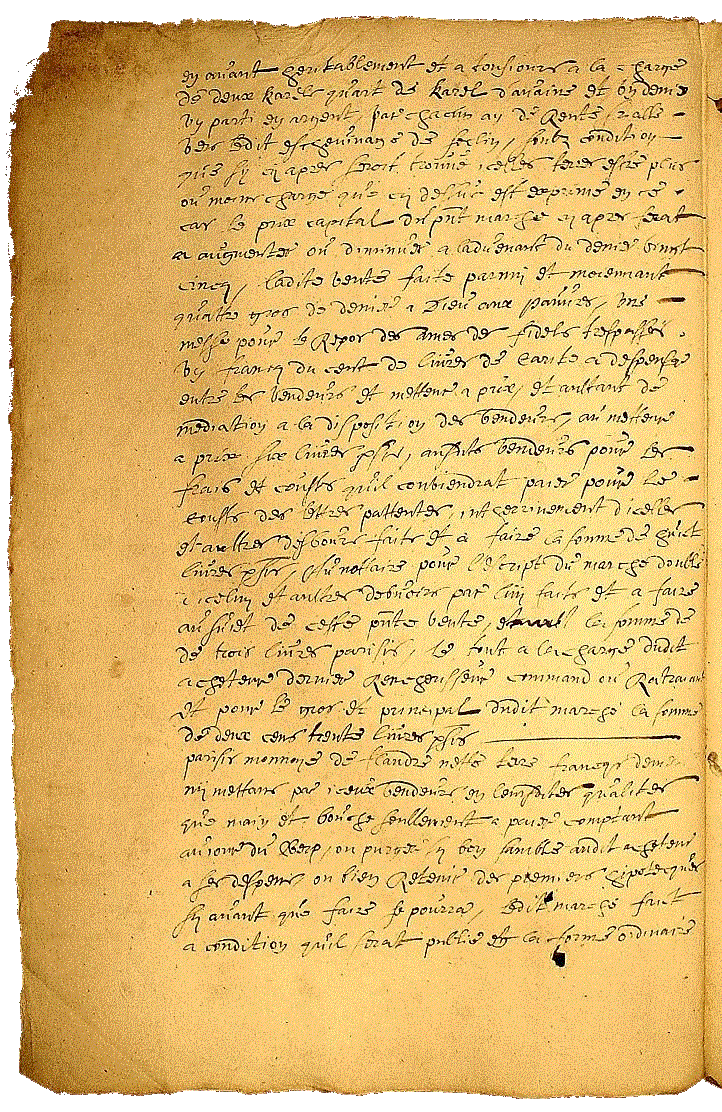 en avant heritablement et a tousiours a la charge
de deux karels quart de karel d'avaine et un denier
un parti en argent, par chacun an de Rente
vers ledit eschevinage de seclin, soubz condition
que sy cy apres seroit trouvé icelles teres estre plus
ou moins chargé que cy dessus est exprimé en ce
cas le prix capital du pnt marché cy apres serat
a augmenter ou diminuer a l'advenant du denier vingt
cincq, ladite vente faite parmi et moiennant
quatre gros de denier a Dieu aux pauvres, une
messe pour le Repos des ames des fidels trespassez
un francq du cent de livres de carité a despenser
entre les vendeurs et metteur a prix, et aultant de
mediation a la disposition des vendeurs, au metteur
a prix six livres psis, ausdits vendeurs pour les
frais et cousts qu'il conviendrat paier pour le
cousts des lettres pattentes, intherrinement d'icelles
et aultres desbours faits et a faire la somme de huict
livres psis, Au notaire pour l'escript du marché double
d'icelui et aultres debvoirs par lui faits et a faire
au suiet de ceste pnte vente, la somme de
de trois livres parisis, le tout a la charge dudit
acheteur dernier Rencherisseur command ou Ratraiant
Et pour le gros et principal dudit marché la somme
de deux cens trente livres psis
parisis monnoye de flandre nets ters francqs
mettans par iceux vendeurs en lesdites qualites
que main et bouche seullement a paier comptant
au jour du werp, ou purger sy bon samble audit acheteur
a ses despens, ou bien Retenir des premiers hipotecques
sy avant que faire se pourra, ledit marché faict
a condition qu'il serat publié en la forme ordinaire